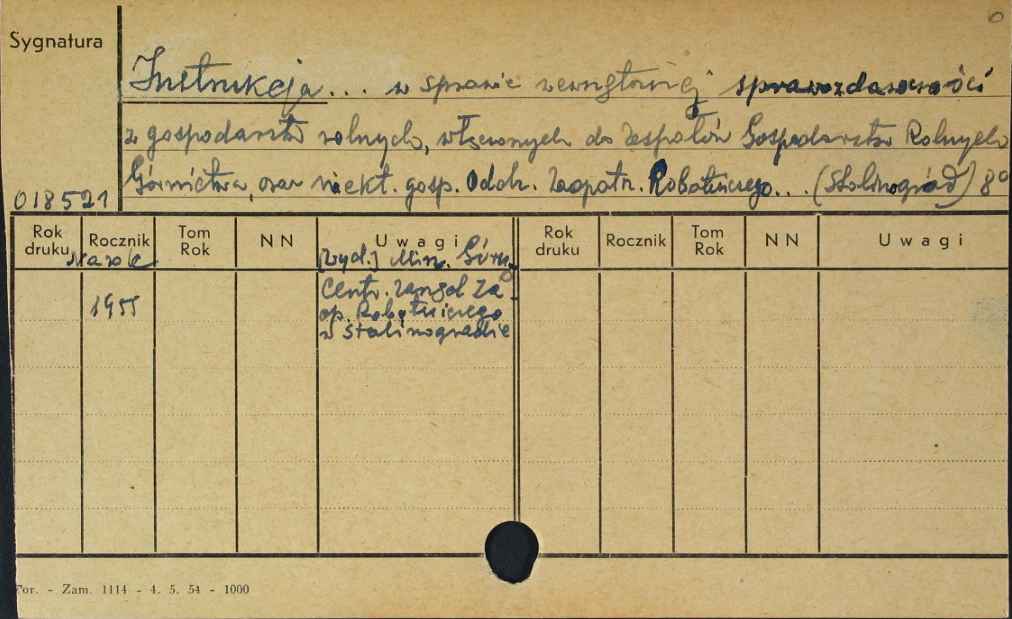 Sygnatura
Instrukcja... w sprawie zewnętrznej sprawozdawczości
z gospodarstw rolnych, włączonych do Zespołów Gospodarstw Rolnych
Górnictwa, oraz niekt. gosp. Oddz. Zaopatrz. Robotniczego... (Stalinogród) 8°
018521
Rok druku Rocznik Tom Rok NN Uwagi Rok druku Rocznik Tom Rok NN Uwagi
[wyd.] Min. Górn.
1955 Centr. Zarząd Za-
op. Robotniczego
w Stalinogrodzie
For. - Zam. 1114 - 4. 5. 54 - 1000